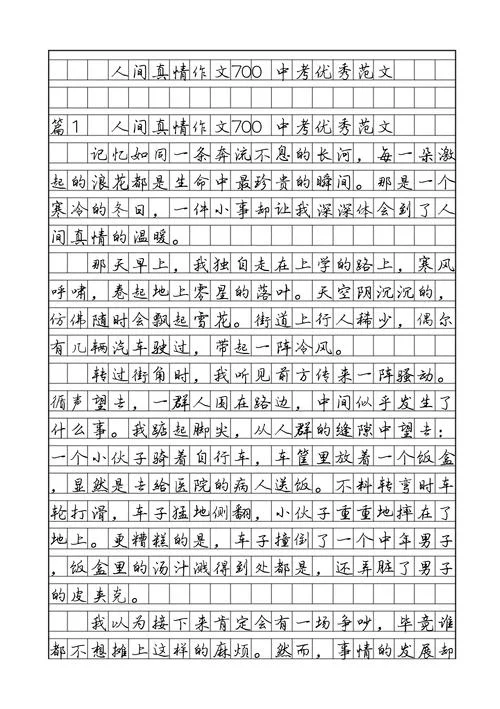 人间真情作文700 中考优秀范文
篇1 人间真情作文700 中考优秀范文
记忆如同一条奔流不息的长河，每一朵激
起的浪花都是生命中最珍贵的瞬间。那是一个
寒冷的冬日，一件小事却让我深深体会到了人
间真情的温暖。
那天早上，我独自走在上学的路上，寒风
呼啸，卷起地上零星的落叶。天空阴沉沉的，
仿佛随时会飘起雪花。街道上行人稀少，偶尔
有几辆汽车驶过，带起一阵冷风。
转过街角时，我听见前方传来一阵骚动。
循声望去，一群人围在路边，中间似乎发生了
什么事。我踮起脚尖，从人群的缝隙中望去：
一个小伙子骑着自行车，车筐里放着一个饭盒
，显然是去给医院的病人送饭。不料转弯时车
轮打滑，车子猛地侧翻，小伙子重重地摔在了
地上。更糟糕的是，车子撞倒了一个中年男子
，饭盒里的汤汁溅得到处都是，还弄脏了男子
的皮夹克。
我以为接下来肯定会有一场争吵，毕竟谁
都不想摊上这样的麻烦。然而，事情的发展却